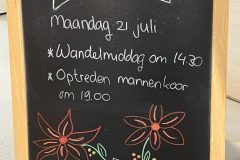 maandag 21 juli
* Wandelmiddag om 14.30
* Optreden mannenkoor
om 19.00